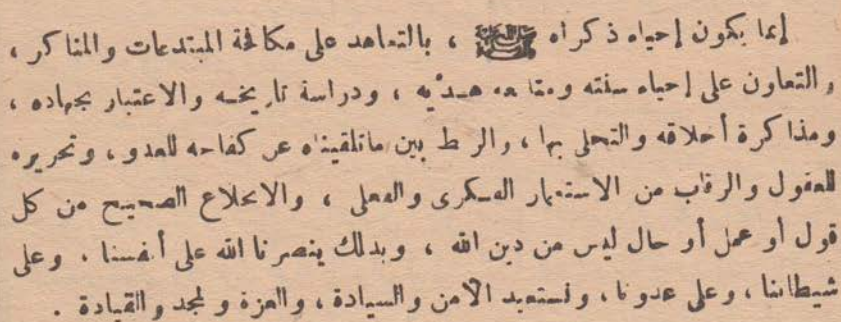 إنما يكون إحياء ذكراه ﷺ ، بالتعاهد على مكافحة المبتدعات والمناكر ،
والتعاون على إحياء سنته ومتابعة هديه ، ودراسة تاريخه والاعتبار بجهاده ،
ومذاكرة أخلاقه والتحلى بها ، والربط بين ماتلقيناه عن كفاحه للعدو ، وتحريره
للعقول والرقاب من الاستعمار العسكرى والعقلى ، والانخلاع الصحيح من كل
قول أو عمل أو حال ليس من دين الله ، وبذلك ينصرنا الله على أنفسنا ، وعلى
شيطاننا ، وعلى عدونا ، ونستعيد الأمن والسيادة ، والعزة والمجد والقيادة .